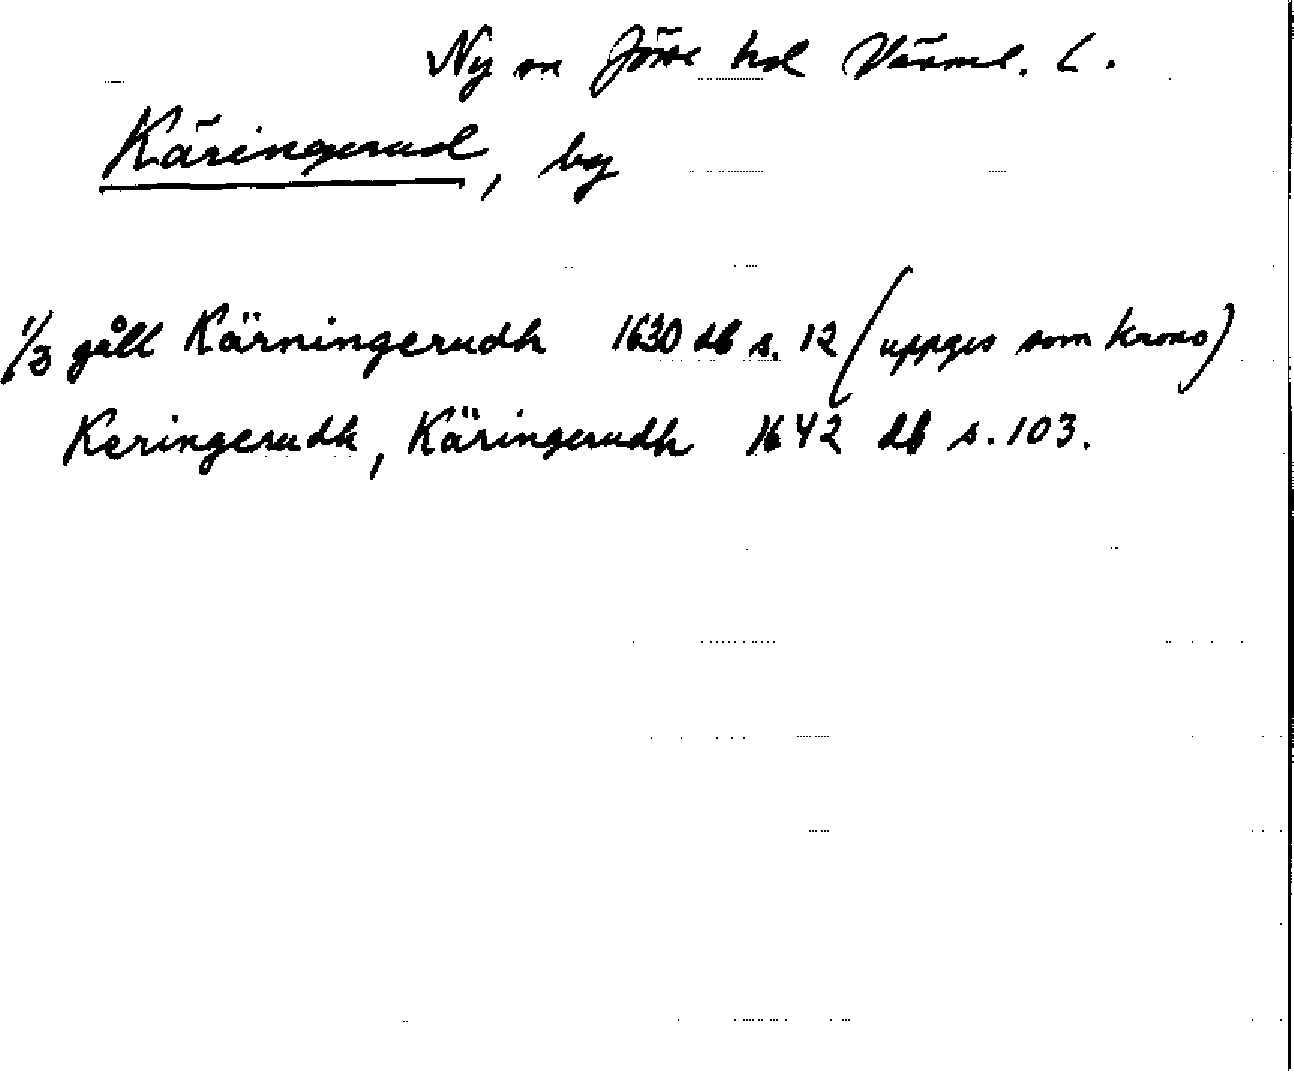 Ny sn Jösse hd Värml. L.
Käringerud, by
1/3 gåll Kärningerudh 1630 db s. 12 (uppges som krono)
Keringerudh, Käringerudh 1642 db s. 103.